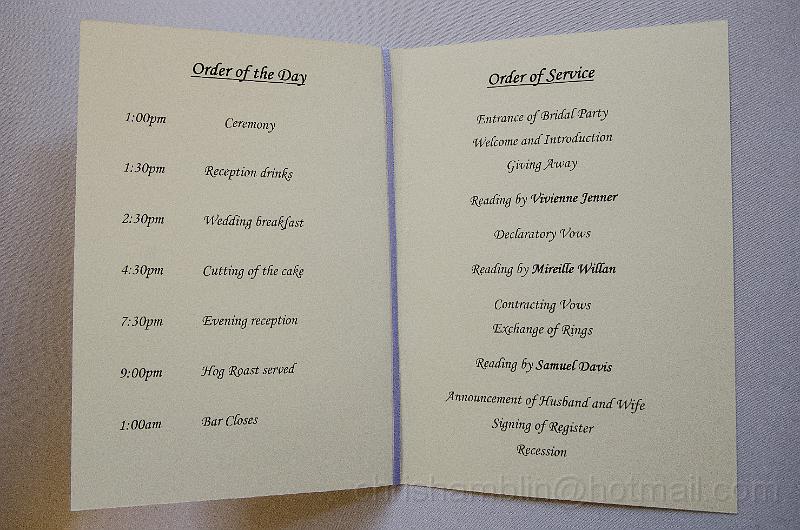 Order of the Day
1:00pm Ceremony
1:30pm Reception drinks
2:30pm Wedding breakfast
4:30pm Cutting of the cake
7:30pm Evening reception
9:00pm Hog Roast served
1:00am Bar Closes
Order of Service
Entrance of Bridal Party
Welcome and Introduction
Giving Away
Reading by Vivienne Jenner
Declaratory Vows
Reading by Mireille Willan
Contracting Vows
Exchange of Rings
Reading by Samuel Davis
Announcement of Husband and Wife
Signing of Register
Recession
chrishamblin@hotmail.com